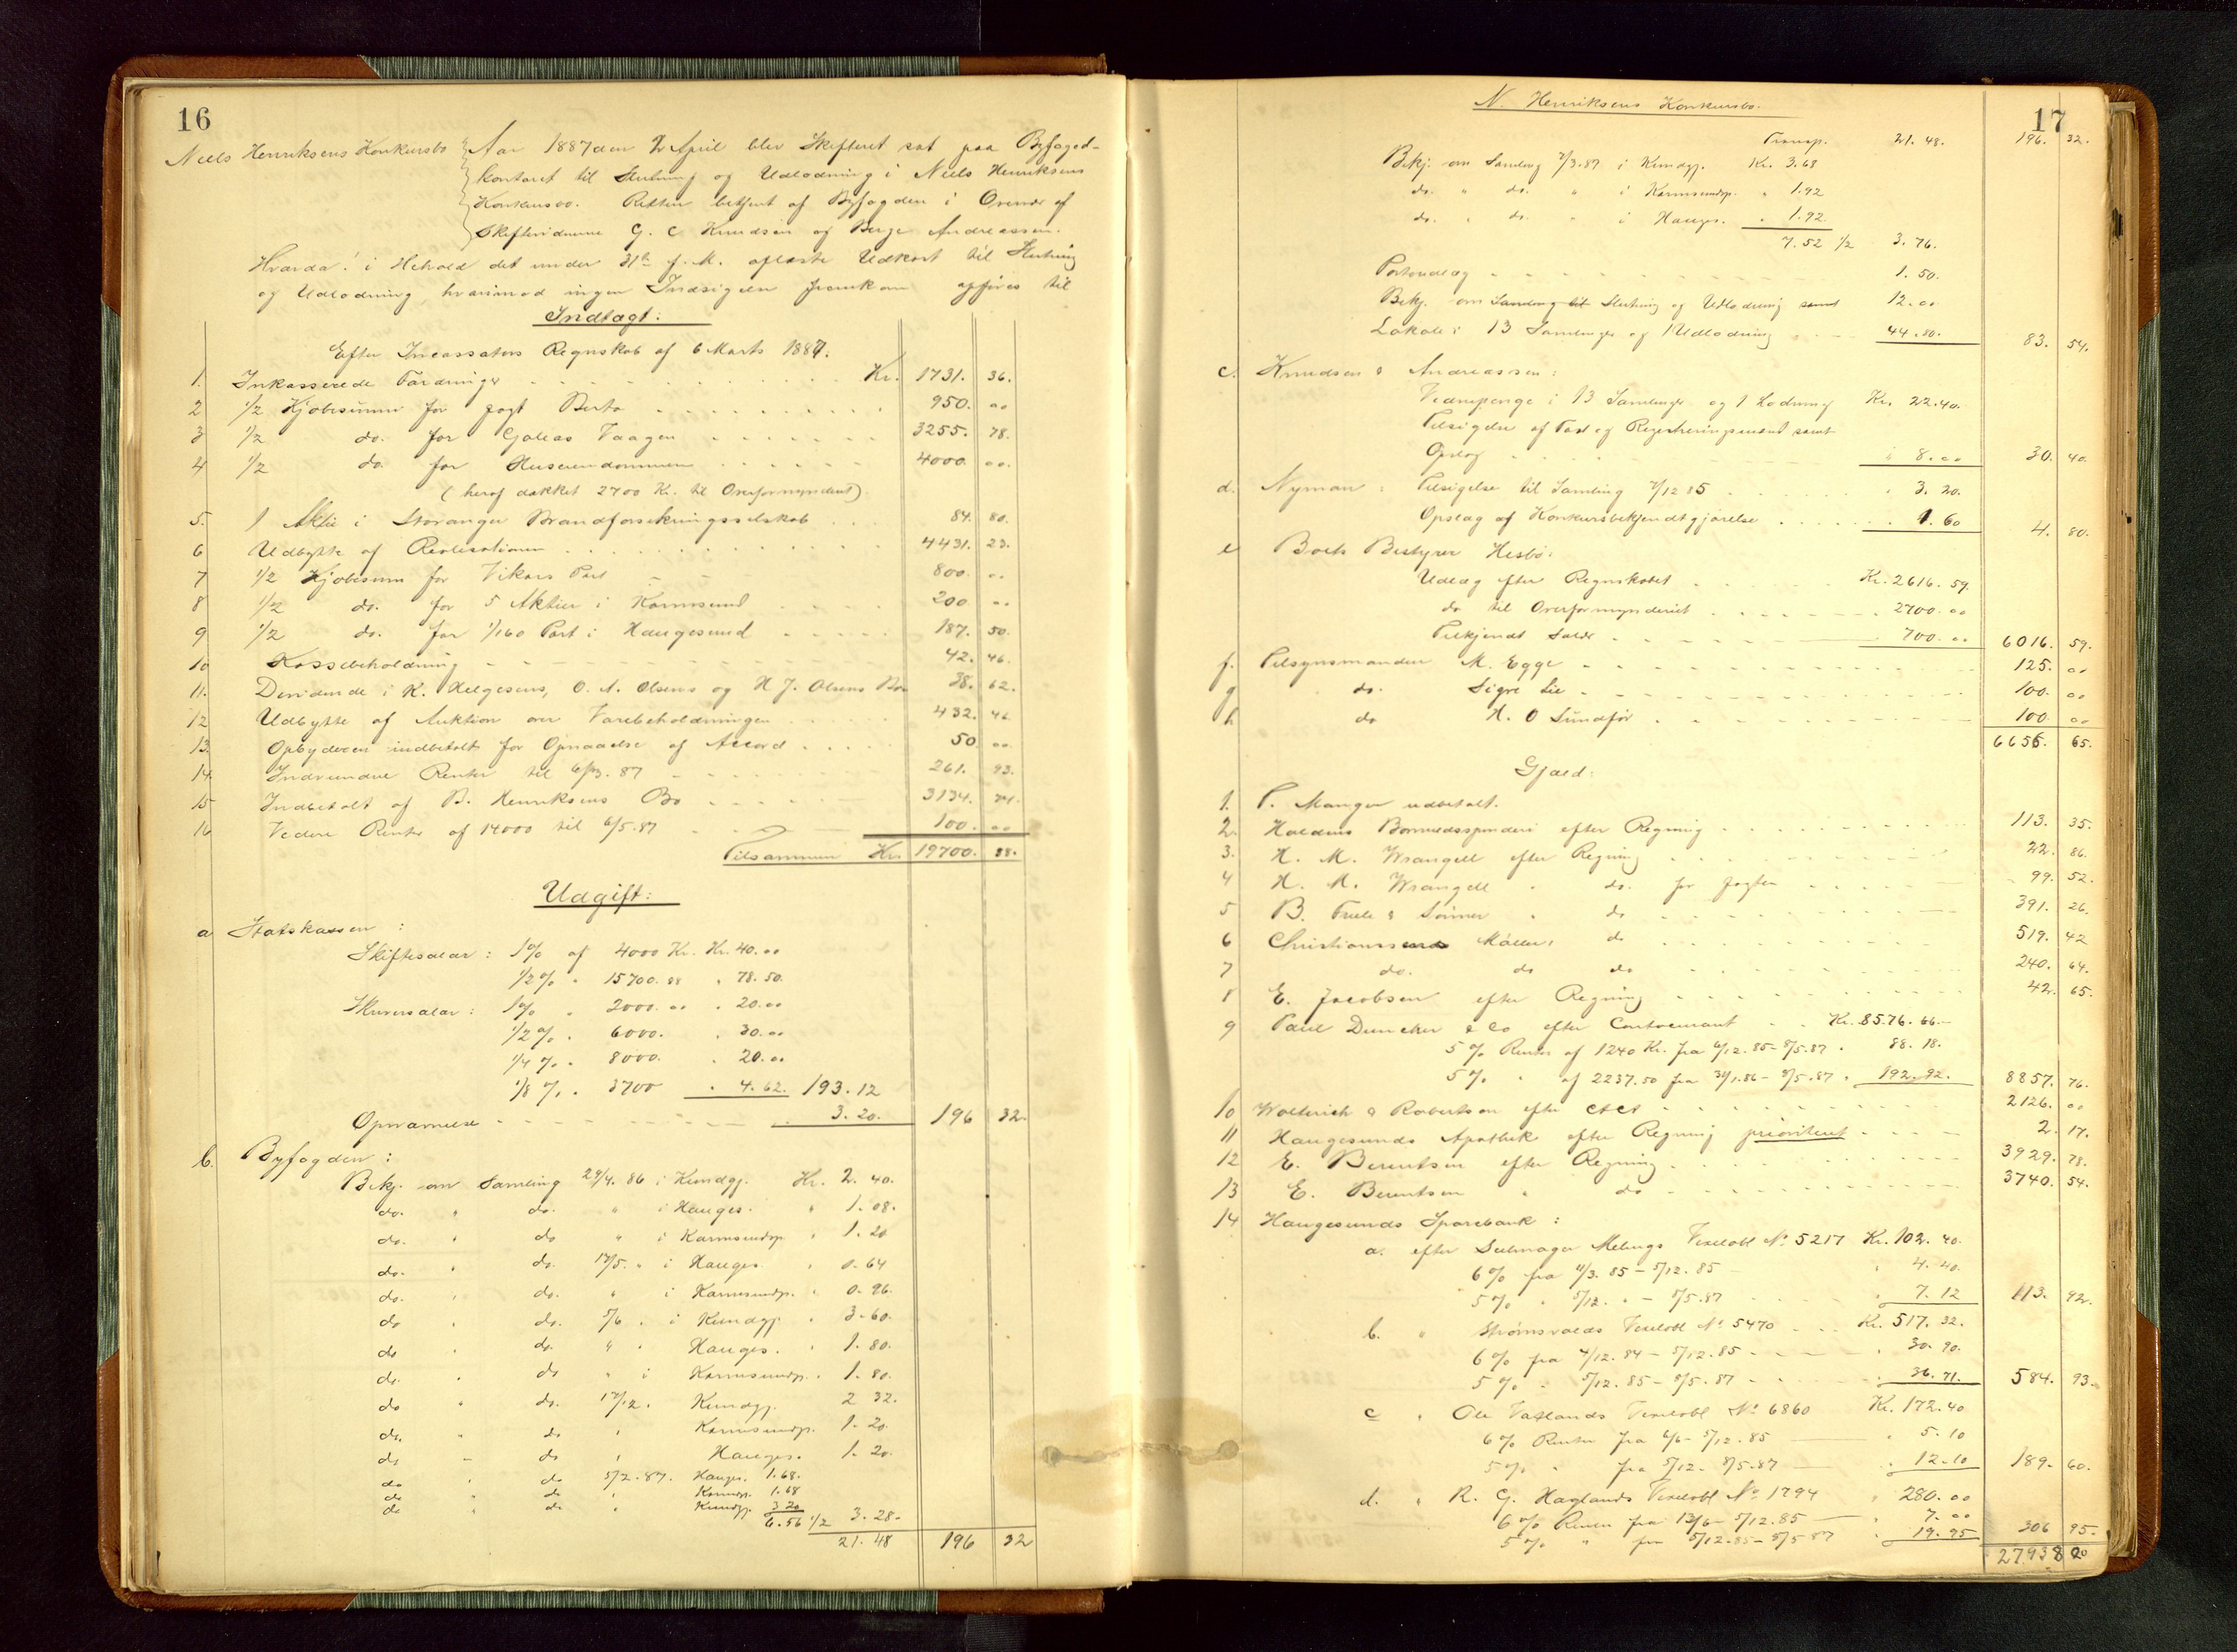 16
Niels Henriksens Konkursbo Aar 1887 den 2 April blev Skifteret sat paa Byfoged-
kontoret til Slutning og Udlodning i Niels Henriksens
Konkursbo. Retten betjent af Byfogden i Overvær af
Skiftevidnerne G. C. Knudsen og Berge Andreassen.
Hvorda: i Hehold det under 31te f. M. oplæste Udkast til Slutning
og Udlodning, hvorimod ingen Indsigelse fremkom opgjøres til
Indtægt:
Efter Incassators Regnskab af 6 Marts 1887.
1. Inkasserede Fordringer Kr. 1731. 36.
2 1/2 Kjøbesum for Jagt Berta 950. 00
3 1/2 do. for Galeas Vaagen 3255. 78.
4 1/2 do for Huseiendommen 4000. 00.
(heraf dækket 2700 Kr. til Overformynderiet).
5. 1 Aktie i Stavanger Brandforsikringsselskab 84. 80.
6 Udbytte af Realisationen 4431. 23.
7 1/2 Kjøbesum for Vikars Part 800. 00
8 1/2 do. for 5 Aktier i Karmsund 200. 00
9 1/2 do. for 1/160 Part i Haugesund 187. 50.
10 Kassebeholdning 42. 46.
11. Dividende i K. Helgesens, O. A. Olsens og H J. Olsens Bo 38. 62.
12 Udbytte af Auktion over Varebeholdningen 432. 46
13. Opbyderen indbetalt for Opnaaelse af Accord 50. 00.
14. Indvundne Renter til 6/3. 87 261. 93.
15 Indbetalt af B. Henriksens Bo 3134. 74.
16 Videre Renter af 14000 til 6/5. 87 100. 00
Tilsammen Kr. 19700. 88.
Udgift:
a Statskassen:
Skiftesalær: 1% af 4000 Kr. Kr. 40.00
1/2 % " 15700.88 " 78.50.
Skriversalær: 1% " 2000.00 " 20.00
1/2 % " 6000. " 30.00
1/4 % " 8000. " 20.00
1/8 % " 3700 " 4.62. 193.12
Opnævnelse 3.20. 196 32.
b. Byfogden:
Bekj. om Samling 29/4. 86 i Kundgj. Kr. 2. 40.
do. " do. " i Hauges. " 1. 08.
do. " do " i Karmsundsp. " 1. 20
do. " do. 12/5. " i Hauges. " 0. 64
do. " do. " i Karmsundsp. " 0. 96.
do " do. 5/6 " i Kundgj. " 3. 60.
do " do. " " Hauges. " 1. 80.
do. " do " i Karmsundsp. " 1. 80.
do " do. 17/12. Kundgj. 2 32.
do. " do " Karmsundsp. 1. 20
do " do " Hauges. 1. 20.
do " do 5/2. 87. Hauges. 1.68.
do " do " Karmsp. 1.68
do " do " Kundgj. 3.20
6.56 1/2 3. 28.
21. 48 196 32
17
N. Henriksens Konkursbo.
Transp. 21. 48. 196. 32.
Bekj. om Samling 7/3.87 i Kundgj. Kr. 3.68
do. " do. " i Karmsundsp. " 1.92
do. " do. " i Hauges. " 1.92.
7. 52 1/2 3. 76.
Portoudlæg 1. 50.
Bekj. om Samling til Slutning og Udlodning samt 12.00
Lokale i 13 Samlinger og 1 Udlodning 44.80. 83. 54.
c. Knudsen & Andreassen:
Vidnepenge i 13 Samlinger og 1 Lodning Kr. 22.40.
Tilsigelse af Tax og Registreringsmænd samt
Opslag " 8.00 30. 40.
d. Nyman: Tilsigelse til Samling 7/12 85 " 3. 20.
Opslag af Konkursbekjendtgjørelse 1. 60 4. 80.
e Boets Bestyrer Hesbø:
Udlæg efter Regnskabet Kr. 2616. 59.
do til Overformynderiet 2700. 00
Tilkjendt Salær 700. 00 6016. 59.
f. Tilsynsmanden M. Egge 125. 00
g do. Sigve Lie 100. 00
h do H. O Sundfør 100. 00
6656. 65.
Gjæld:
1. P. Manger udbetalt.
2. Haldens Bomuldsspinderi efter Regning 113. 35.
3. H. M. Wrangell efter Regning 22. 86.
4 H. M. Wrangell " do. for Jagten 99. 52.
5 B. Friele & Sønner " do 391. 26.
6 Christianssands Møller, do 519. 42
7 do. do do 240. 64.
8 E. Jacobsen efter Regning 42. 65.
9 Paul Duncker & Co efter Contocurant Kr. 8576. 66
5 % Renter af 1240 Kr. fra 6/12. 85 - 8/5. 87 " 88. 18.
5 % " af 2237.50 fra 31/1.86 - 8/5. 87 " 192. 92. 8857. 76.
10 Wollerich & Robertson efter CtCt 2126. 00
11 Haugesunds Apothek efter Regning prioriteret 2. 17.
12 E. Berentsen efter Regning 3929. 78.
13 E. Berentsen " do 3740. 54.
14 Haugesunds Sparebank:
a. efter Seilmager Melings Vexelobl No 5217 Kr. 102. 40.
6 % fra 4/3. 85 - 5/12. 85 " 4. 40.
5 % " 5/12. " - 5/5. 87 " 7. 12 113. 92.
b. " Strømsvolds Vexelobl No 5470 Kr. 517. 32.
6 % fra 4/12. 84 - 5/12. 85 " 30. 90.
5 % " 5/12. 85 - 8/5. 87 " 36. 71. 584. 93.
c " Ole Vatlands Vexelobl No 6860 Kr. 172. 40
6 % Renter fra 6/6 - 5/12. 85 " 5. 10
5 % " fra 5/12. - 8/5.87 " 12. 10 189. 60.
d. " R. G. Haglands Vexelobl No 1794 " 280. 00
6 % Renter fra 13/6 - 5/12. 85 " 7. 00
5 % " fra 5/12. 85 - 5/5 87 " 19. 95 306 95.
27938 20